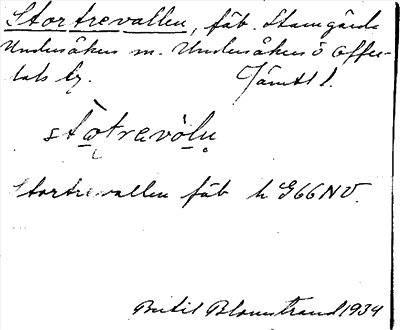 Stortrevallen, fäb. Stamgärde
Undersåkers sn. Undersåkers o Offer-
dals tg. Jämtl l.
stọtrevòlṇ
Stortrevallen fäb h G66NV.
Bertil Blomstrand 1934